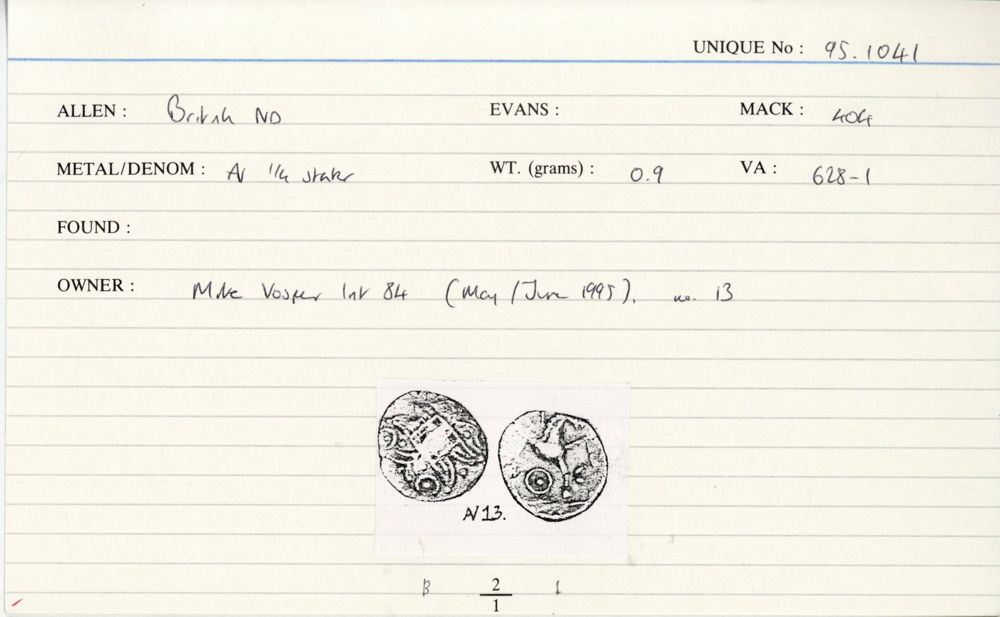 UNIQUE No : 95.1041
ALLEN : British ND EVANS : MACK : 404
METAL/DENOM : AV 1/4 stater WT. (grams) : 0.9 VA : 628-1
FOUND :
OWNER : Mike Vosper List 84 (May/June 1995). no. 13
AV 13.
B 2 1
1